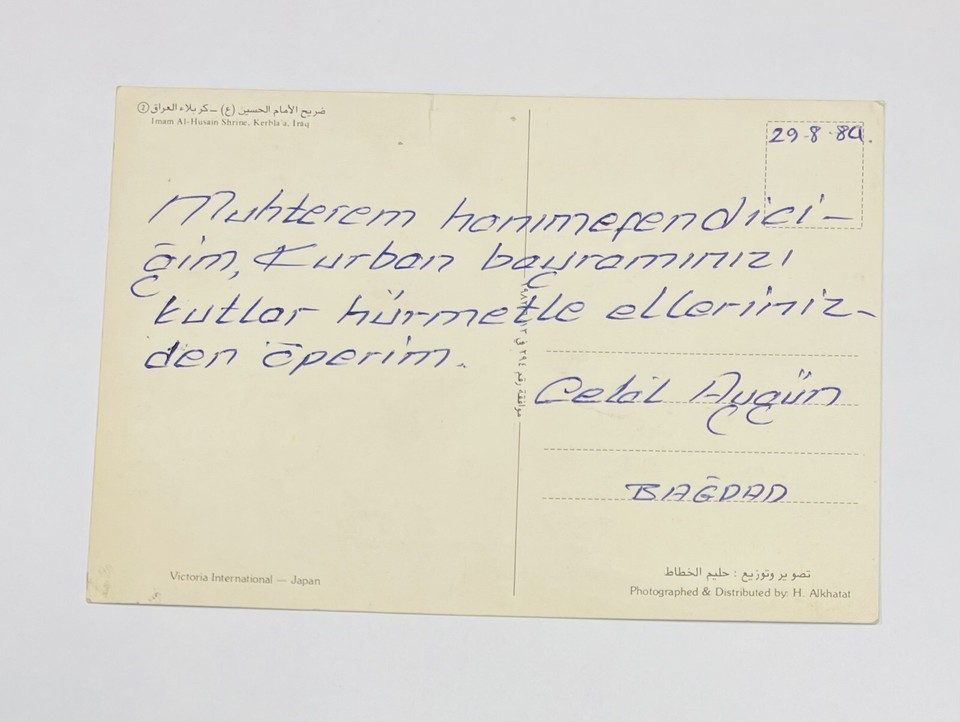 ضريح الأمام الحسين (ع) ـ كربلاء العراق ②
Imam Al-Husain Shrine, Kerbla'a, Iraq
29-8-84.
Muhterem hanımefendici-
ğim, Kurban bayramınızı
kutlar hürmetle elleriniz-
den öperim.
Celal Aygün
BAĞDAD
Victoria International — Japan
تصوير وتوزيع : حليم الخطاط
Photographed & Distributed by: H. Alkhatat
موافقة رقم ٢٩٤ في